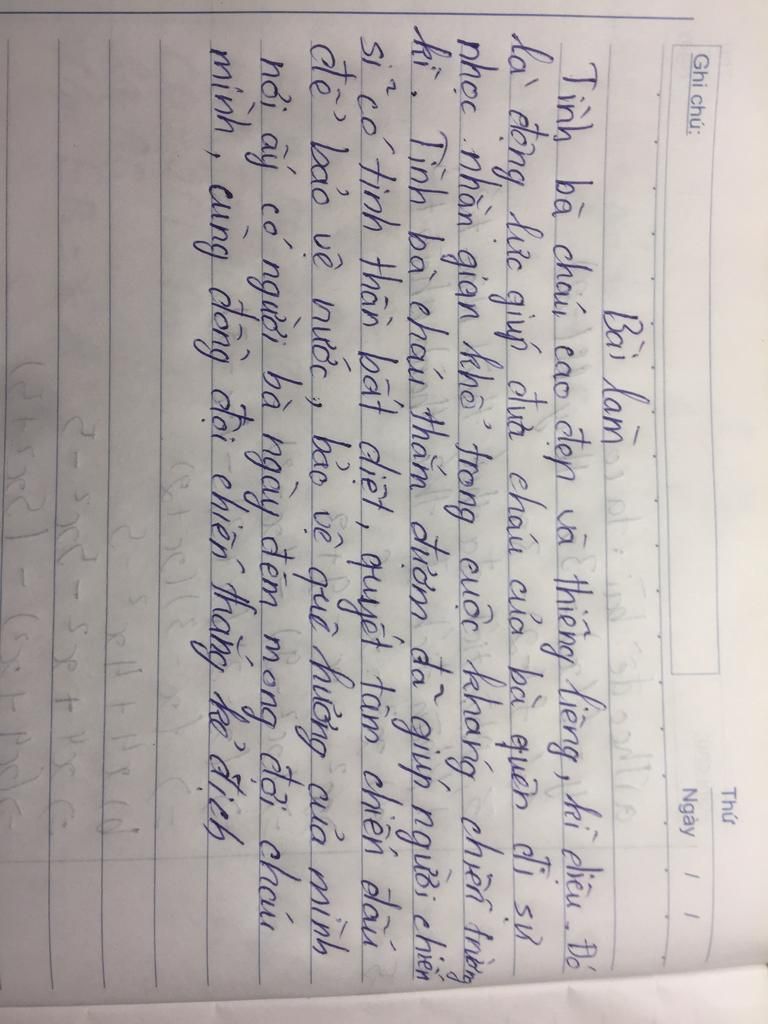 Thứ
Ngày / /
Ghi chú:
Bài làm
Tình bà cháu cao đẹp và thiêng liêng, kì diệu. Đó
là động lực giúp đứa cháu của bà quên đi sự
nhọc nhằn gian khổ trong cuộc kháng chiến trường
kì. Tình bà cháu thắm đượm đã giúp người chiến
sĩ có tinh thần bất diệt, quyết tâm chiến đấu
để bảo vệ nước, bảo vệ quê hương của mình
nơi ấy có người bà ngày đêm mong đợi cháu
mình, cùng đồng đội chiến thắng kẻ địch